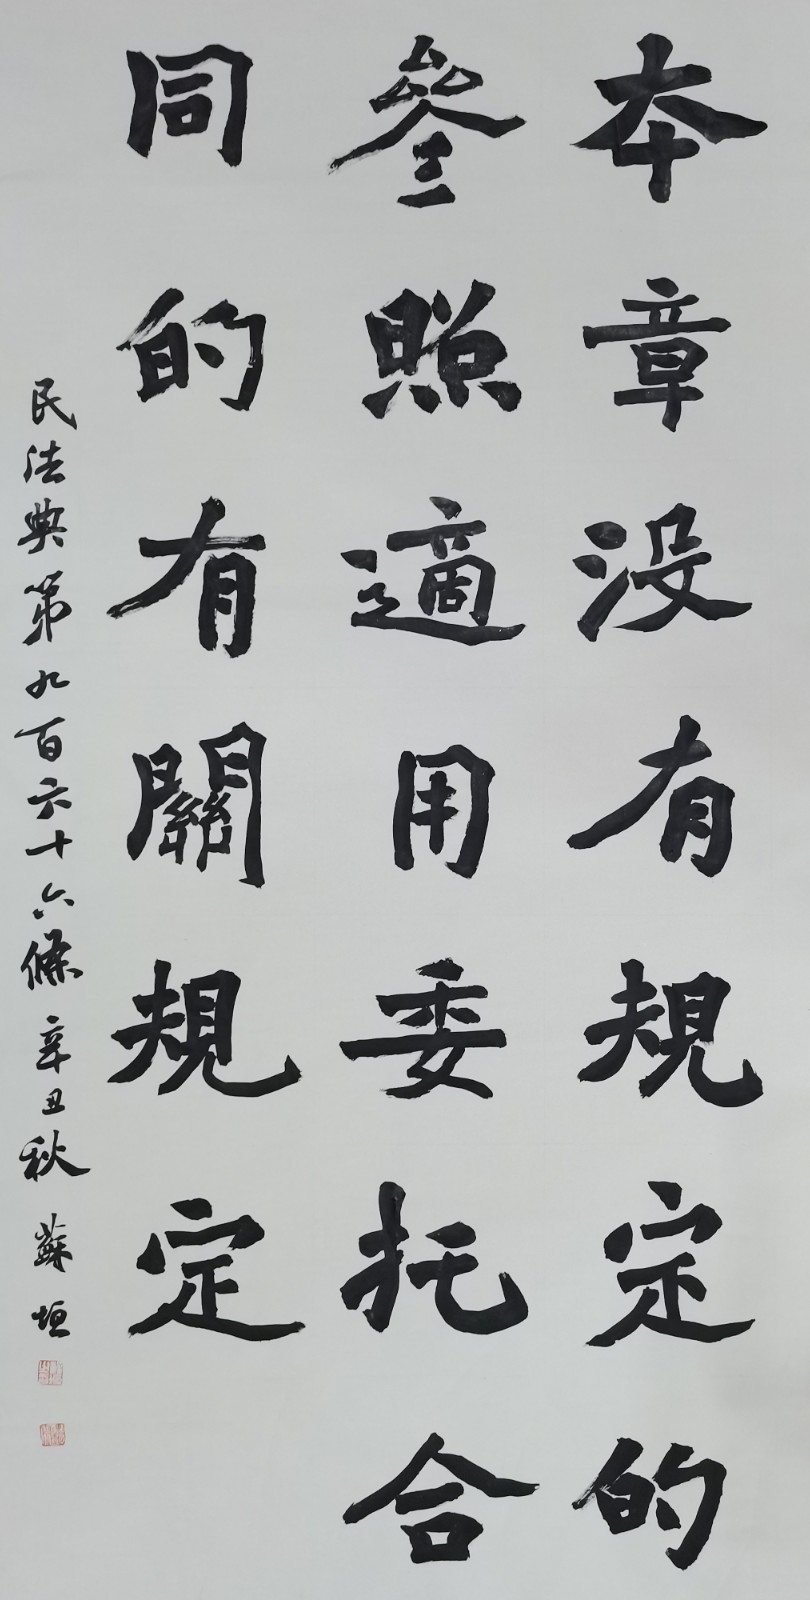 本章没有規定的
參照適用委托合
同的有關規定
民法典第九百六十六條 辛丑秋 蘇垣